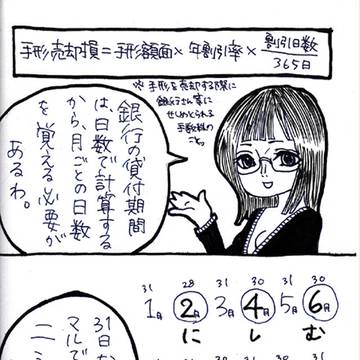 手形売却損=手形額面×年割引率×割引日数/365日
※手形を売却する際に
銀行さん等に
せしめとられる
手数料の
こと。
銀行の貸付期間
は日数で計算する
から、月ごとの日数
を、覚える必要が
あるわ。
31 28 31 30 31 30
1月 2月 3月 4月 5月 6月
に し む
31日
マルで